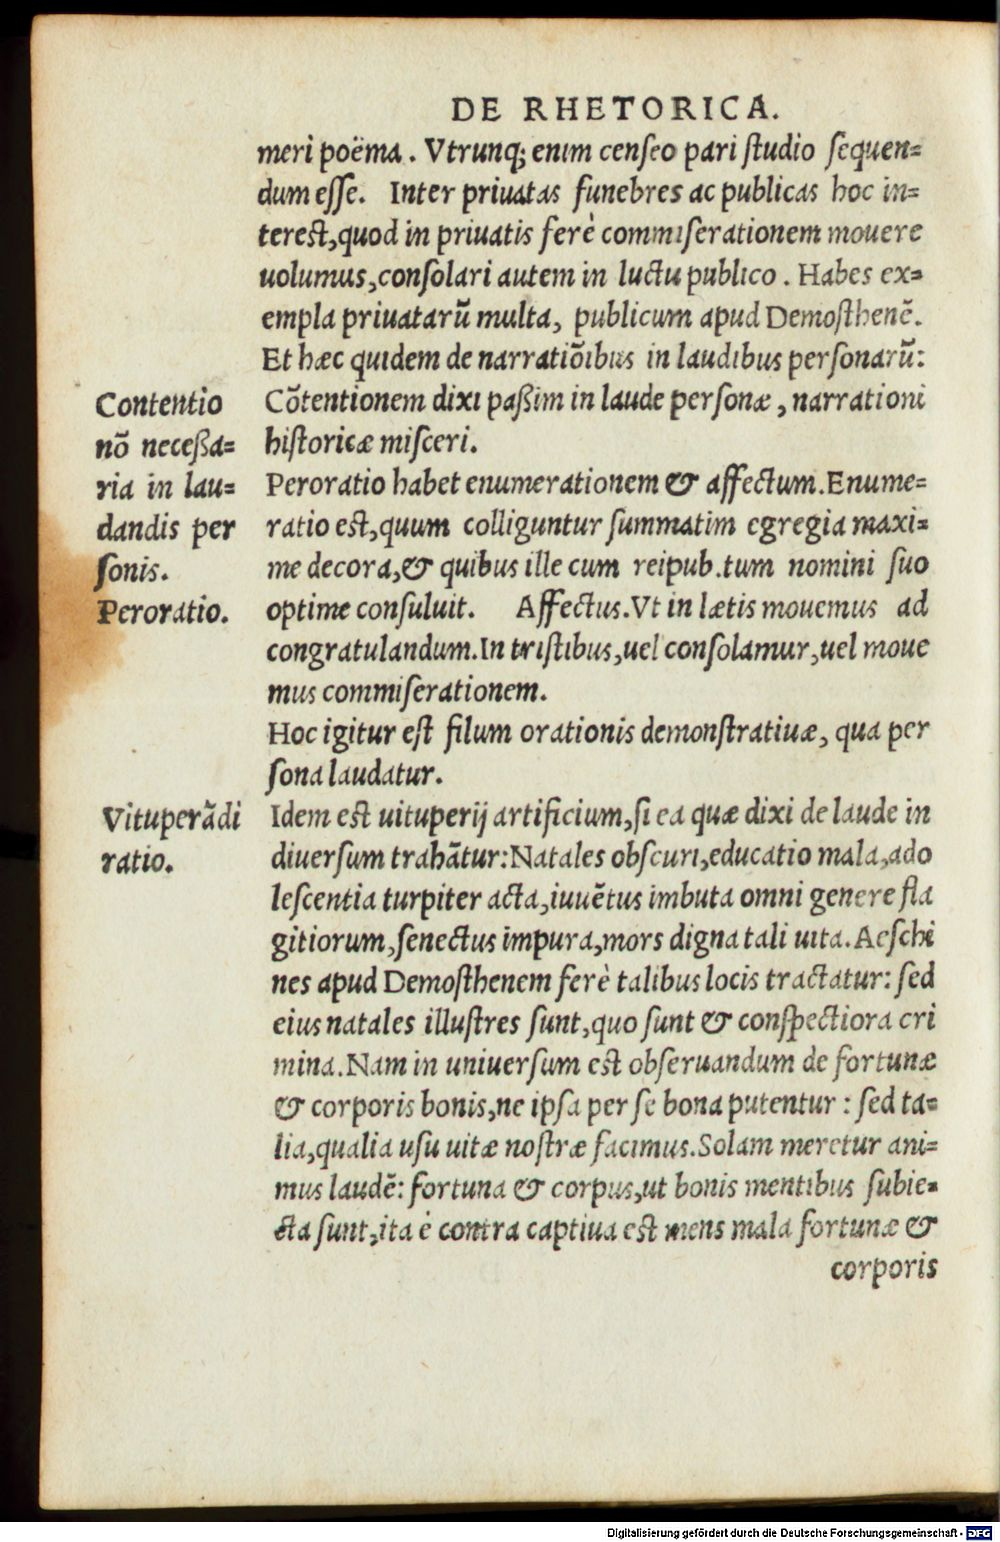 DE RHETORICA.
meri poëma. Vtrunq; enim censeo pari studio sequen=
dum esse. Inter priuatas funebres ac publicas hoc in=
terest, quod in priuatis ferè commiserationem mouere
uolumus, consolari autem in luctu publico. Habes ex=
empla priuatarũ multa, publicum apud Demosthenẽ.
Et hæc quidem de narratiõibus in laudibus personarũ:
Contentio
nõ neceßa=
ria in lau=
dandis per
sonis.
Cõtentionem dixi paßim in laude personæ, narrationi
historicæ misceri.
Peroratio.
Peroratio habet enumerationem & affectum. Enume=
ratio est, quum colliguntur summatim egregia maxi=
me decora, & quibus ille cum reipub. tum nomini suo
optime consuluit. Affectus. Vt in lætis mouemus ad
congratulandum. In tristibus, uel consolamur, uel moue
mus commiserationem.
Hoc igitur est filum orationis demonstratiuæ, qua per
sona laudatur.
Vituperãdi
ratio.
Idem est uituperij artificium, si ea quæ dixi de laude in
diuersum trahãtur: Natales obscuri, educatio mala, ado
lescentia turpiter acta, iuuẽtus imbuta omni genere fla
gitiorum, senectus impura, mors digna tali uita. Aeschi
nes apud Demosthenem ferè talibus locis tractatur: sed
eius natales illustres sunt, quo sunt & conspectiora cri
mina. Nam in uniuersum est obseruandum de fortunæ
& corporis bonis, ne ipsa per se bona putentur: sed ta=
lia, qualia usu uitæ nostræ facimus. Solam meretur ani=
mus laudẽ: fortuna & corpus, ut bonis mentibus subie=
cta sunt, ita è contra captiua est mens mala fortunæ &
corporis
Digitalisierung gefördert durch die Deutsche Forschungsgemeinschaft - DFG